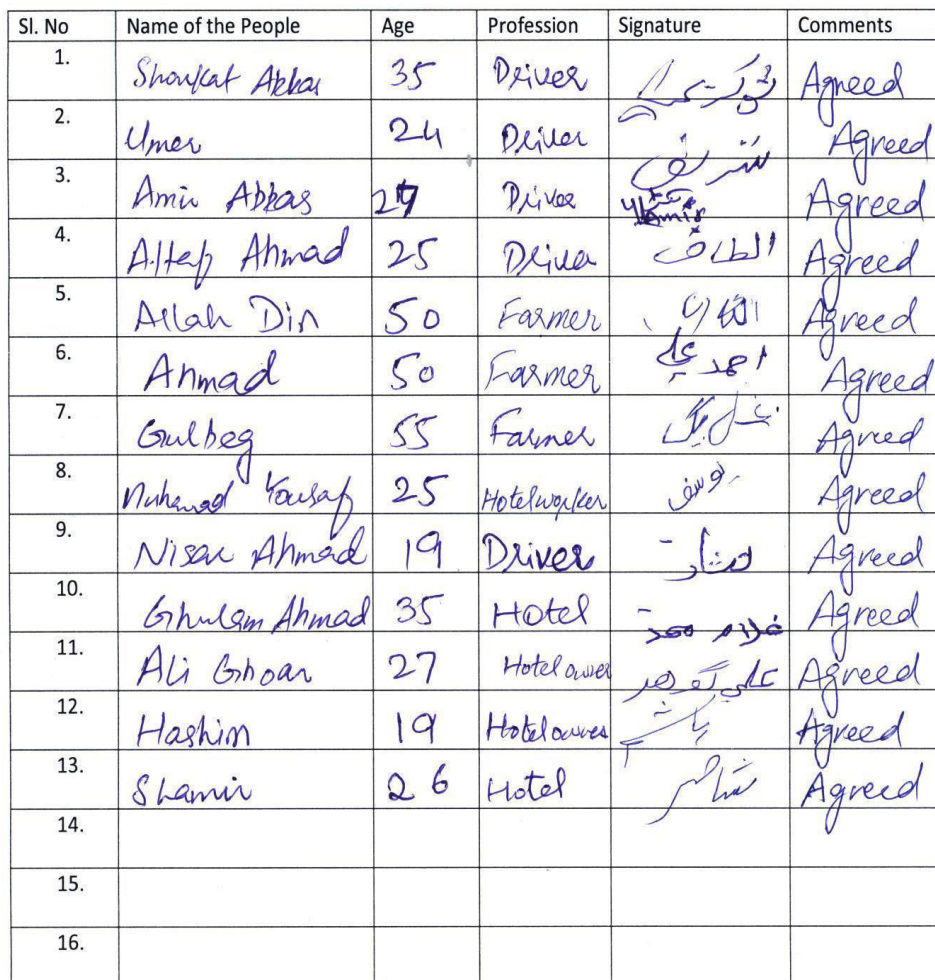 Sl. No Name of the People Age Profession Signature Comments
1. Shoukat Abbas 35 Driver Agreed
2. Umer 24 Driver شريف Agreed
3. Amir Abbas 27 Driver Amir Agreed
4. Altaf Ahmad 25 Driver الطاف Agreed
5. Allah Din 50 Farmer Agreed
6. Ahmad 50 Farmer احمد علي Agreed
7. Gulbeg 55 Farmer Agreed
8. Muhamad Yousaf 25 Hotel worker يوسف Agreed
9. Nisar Ahmad 19 Driver Agreed
10. Ghulam Ahmad 35 Hotel غلام Agreed
11. Ali Ghoar 27 Hotel owner علي گوهر Agreed
12. Hashim 19 Hotel owner Agreed
13. Shamir 26 Hotel Agreed
14.
15.
16.